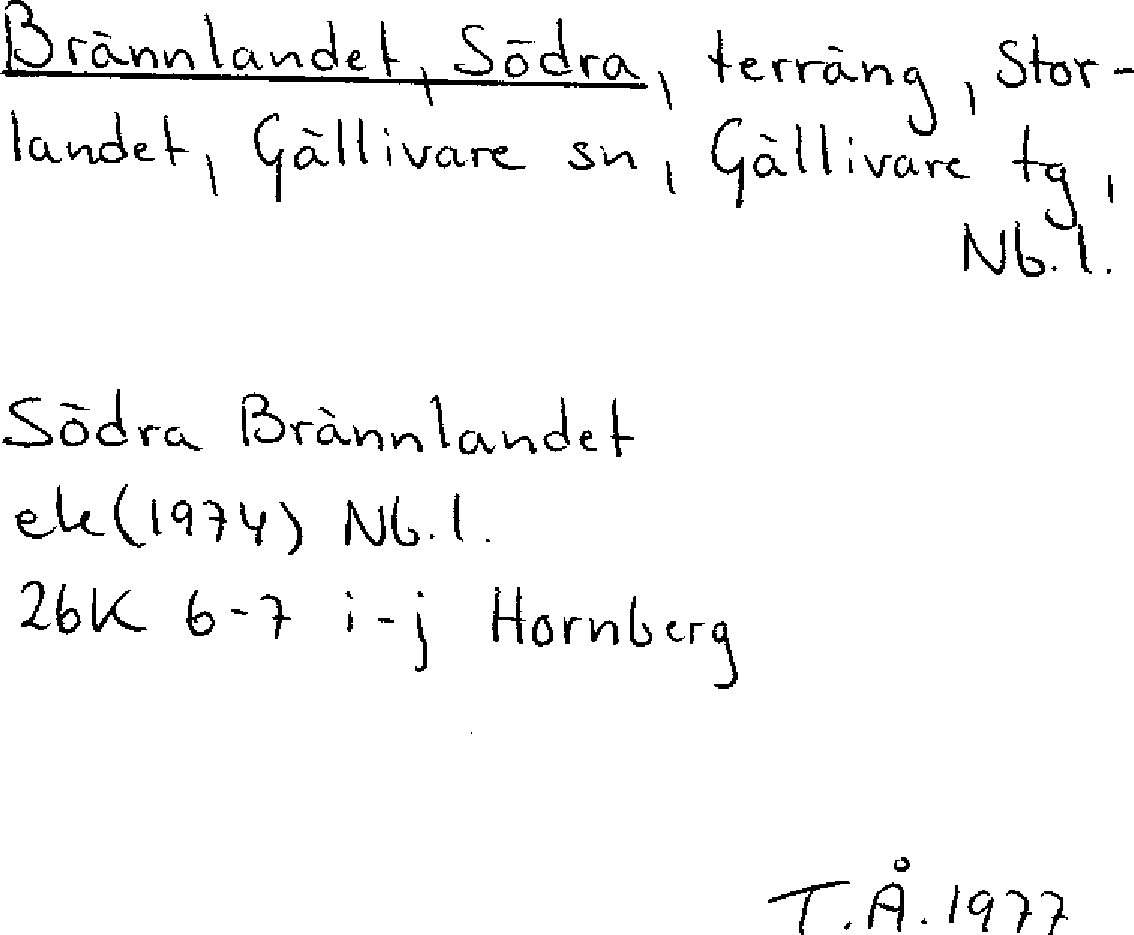 Brännlandet, Södra, terräng, Stor-
landet, Gällivare sn, Gällivare tg,
Nb.l.
Södra Brännlandet
ek(1974) Nb.l.
26K 6-7 i-j Hornberg
T.Å.1977